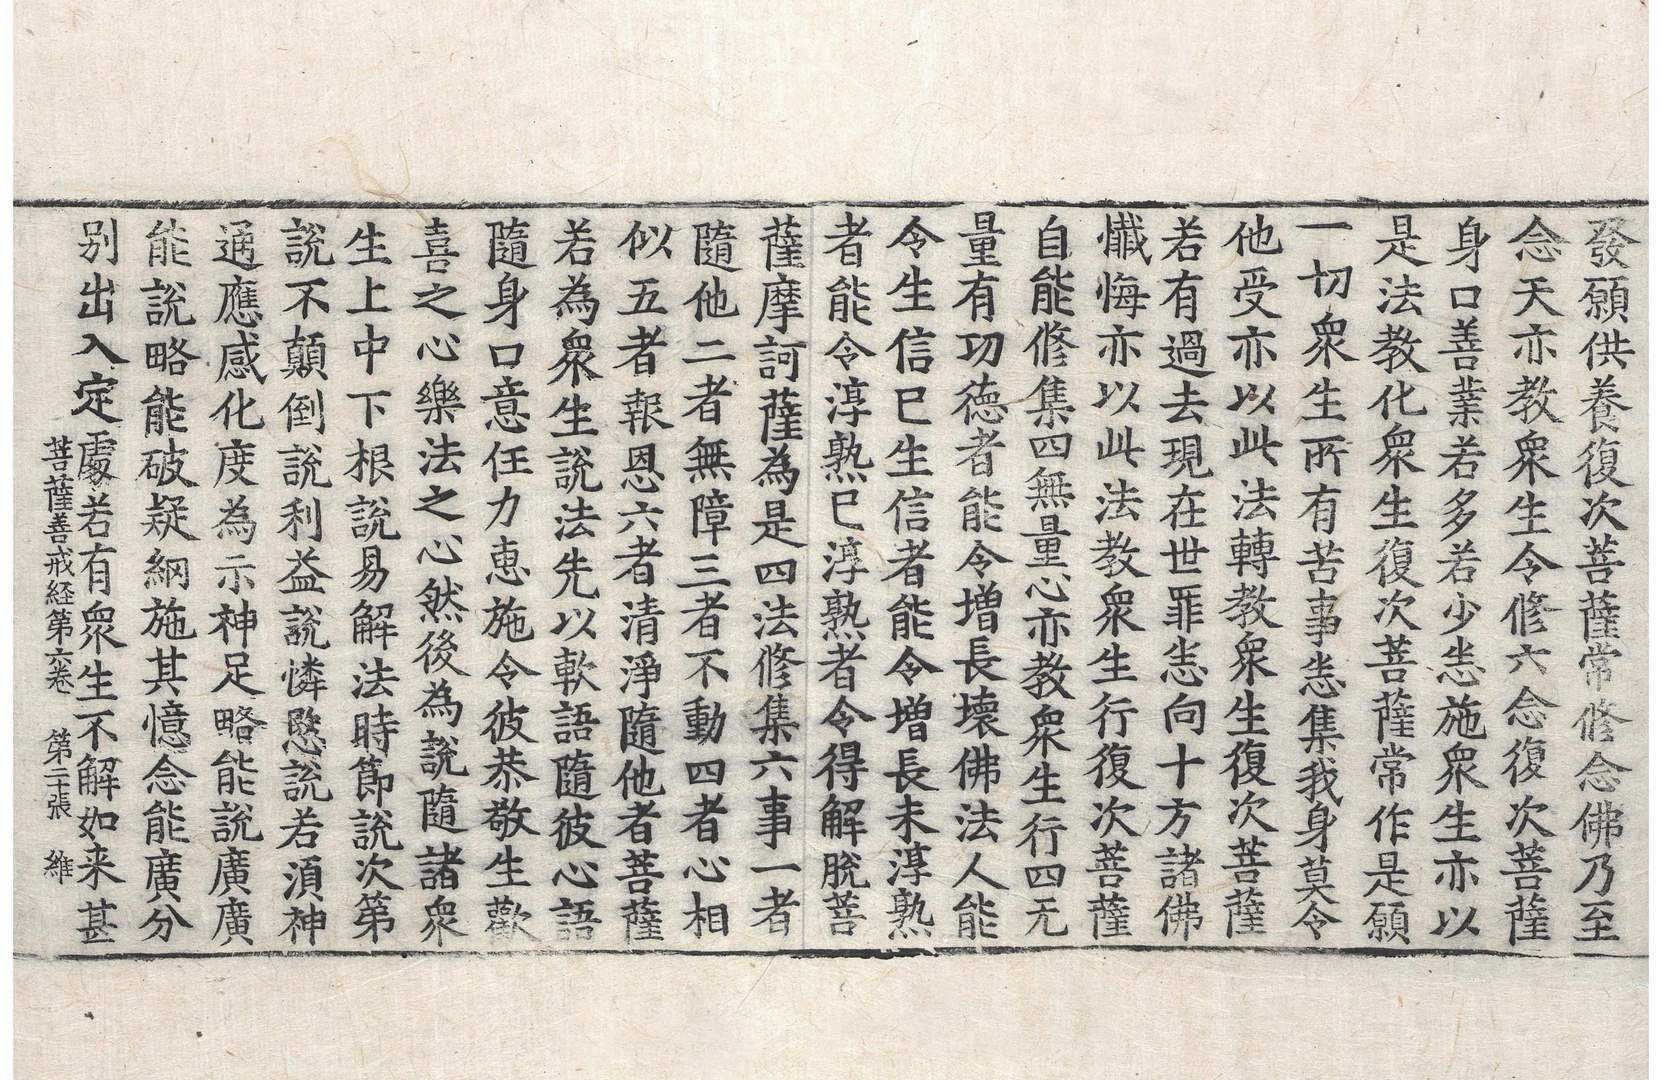 發願供養復次菩薩常修念佛乃至
念天亦教衆生令修六念復次菩薩
身口善業若多若少悉施衆生亦以
是法教化衆生復次菩薩常作是願
一切衆生所有苦事悉集我身莫令
他受亦以此法轉教衆生復次菩薩
若有過去現在世罪悉向十方諸佛
懺悔亦以此法教衆生行復次菩薩
自能修集四無量心亦教衆生行四无
量有功德者能令增長壞佛法人能
令生信已生信者能令增長未淳熟
者能令淳熟已淳熟者令得解脫菩
薩摩訶薩為是四法修集六事一者
隨他二者無障三者不動四者心相
似五者報恩六者清淨隨他者菩薩
若為衆生說法先以軟語隨彼心語
隨身口意任力惠施令彼恭敬生歡
喜之心樂法之心然後為說隨諸衆
生上中下根說易解法時節說次第
說不顛倒說利益說憐愍說若須神
通應感化度為示神足略能說廣廣
能說略能破疑網施其憶念能廣分
別出入定處若有衆生不解如来甚
菩薩善戒経第六卷　第二十張　維